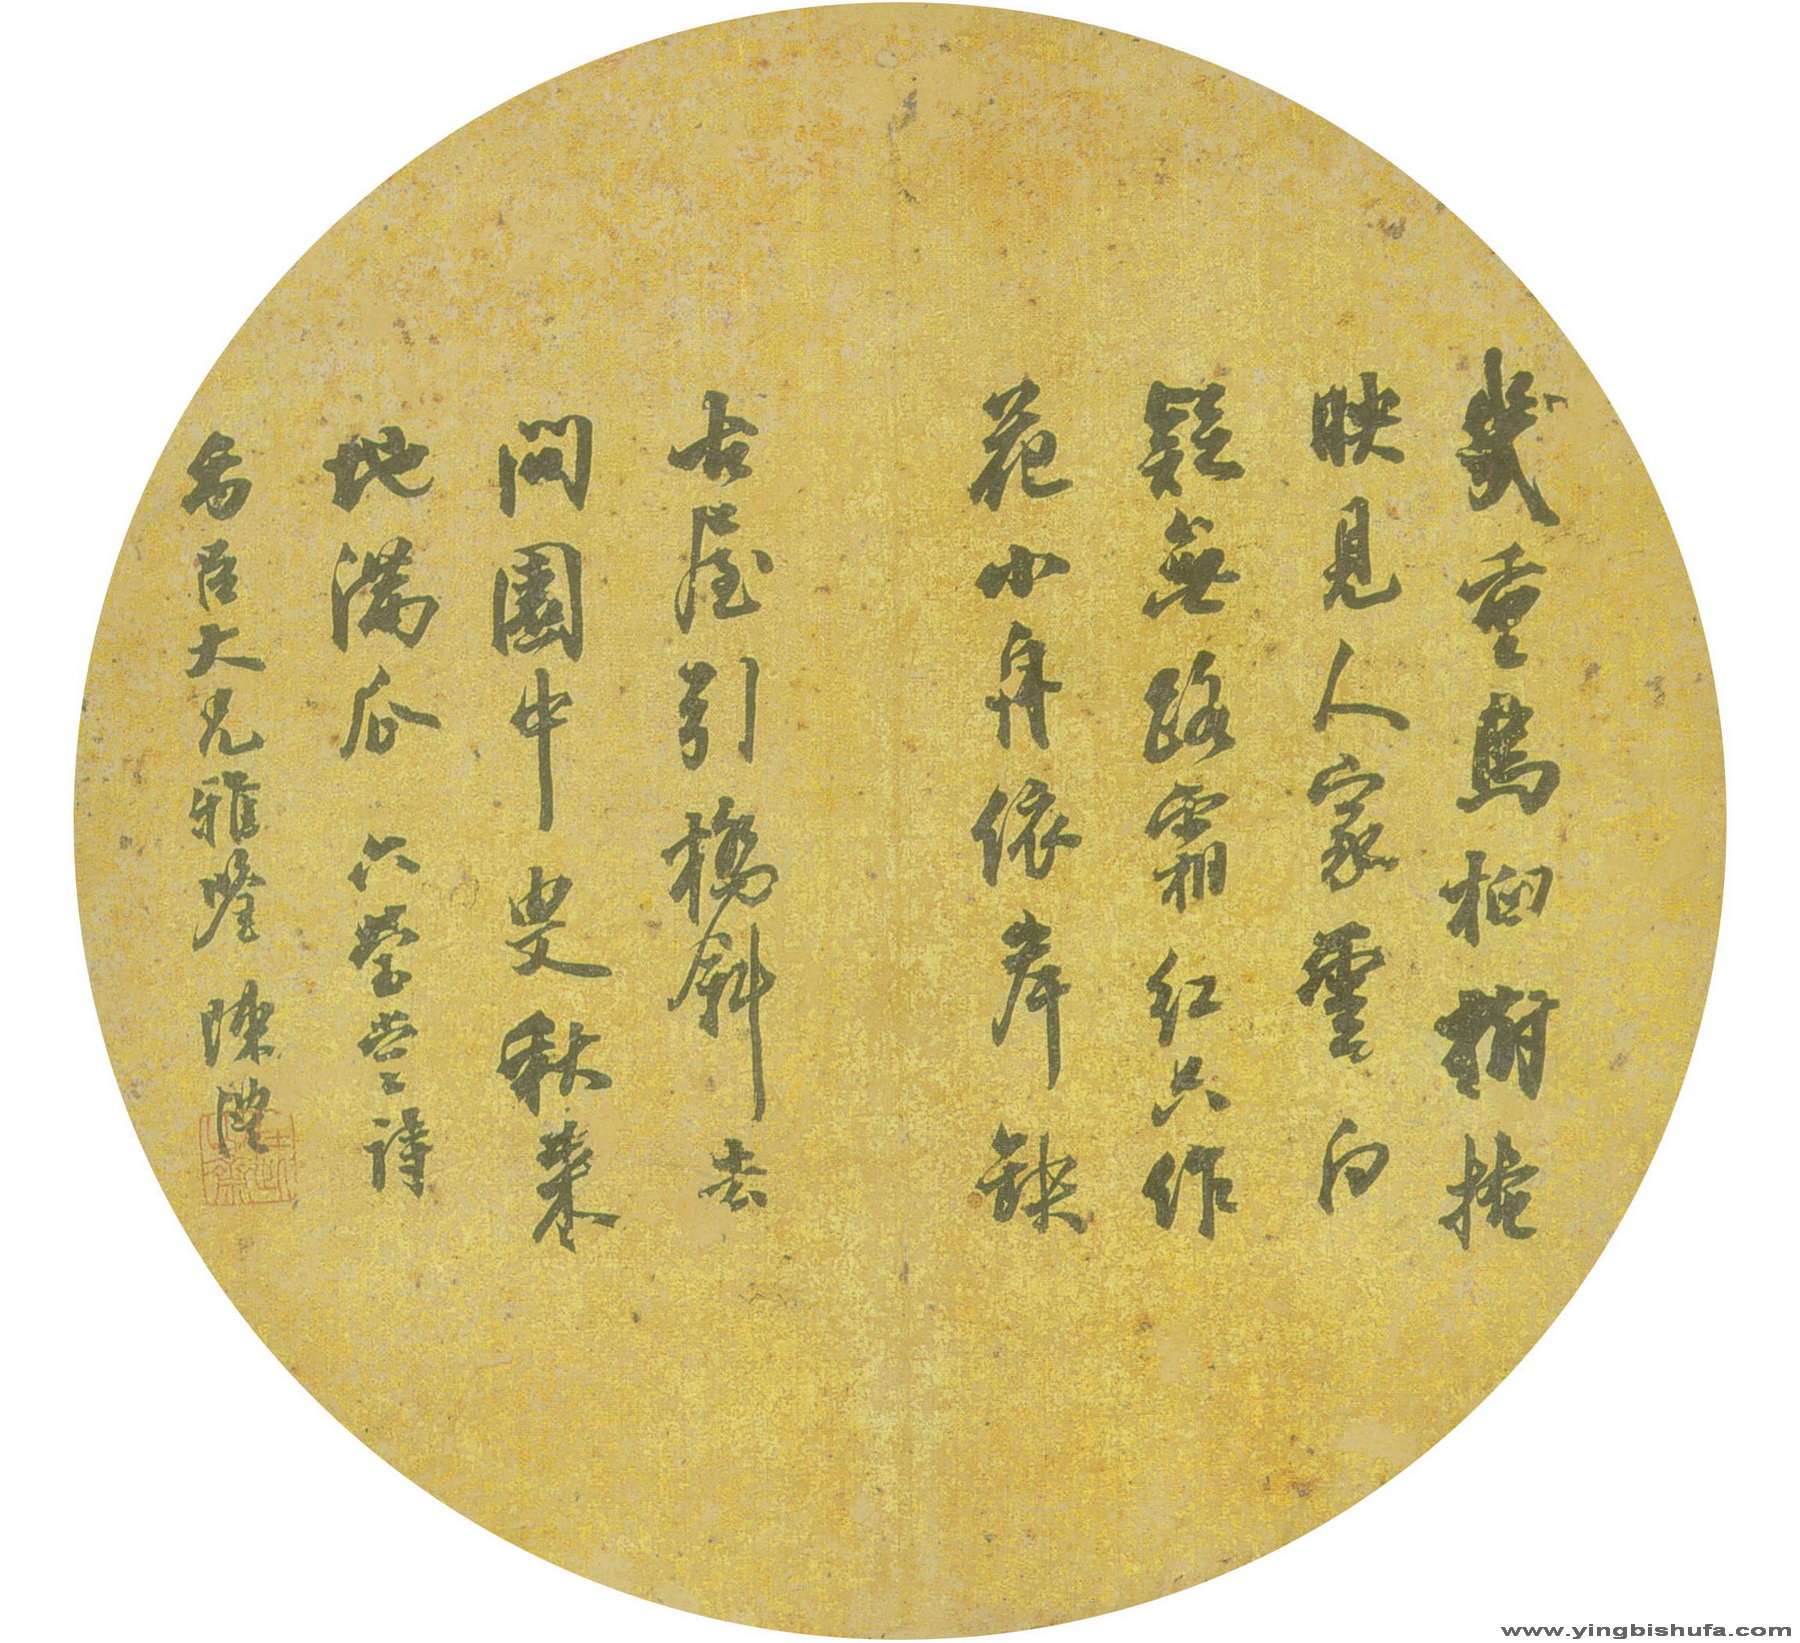 幾重烏桕樹掩
映見人家雲白
疑無路霜紅只作
花小舟依岸缺
古屋引橋斜去
問園中叟秋來
地滿瓜 六瑩堂詩
大兄雅鑒 陳澧
www.yingbishufa.com